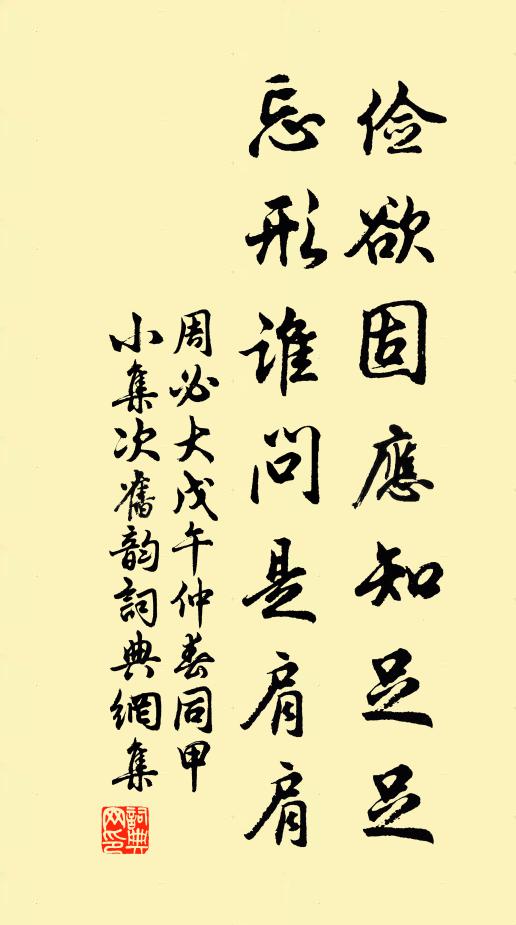 俭欲固應知足足
忘形谁問是肩肩
周必大戊午仲春同甲
小集次舊韵詞典網集
詞典
网印